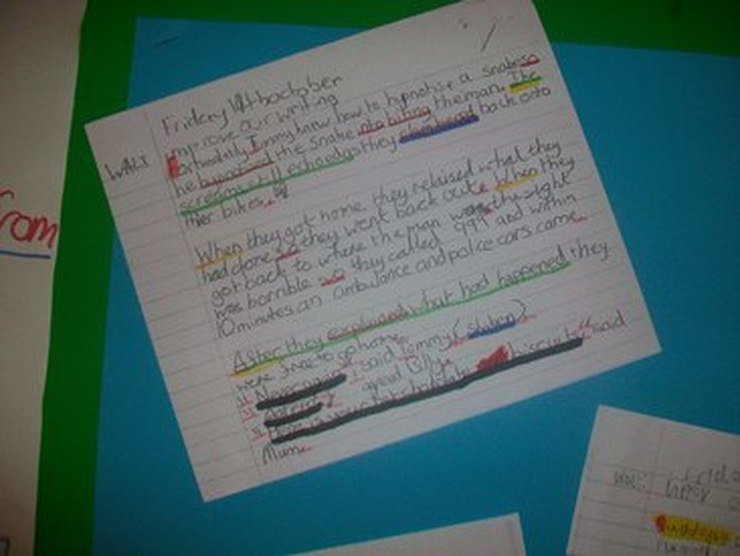 Friday 11th october
WALT improve our writing
Fortunately Timmy knew how to hypnotise a snake so
he hypnotised the snake into biting the man. The
screams still echoed as they climbed back onto
ther bikes.
When they got home they relised what they
had done so they went back out. When they
got back to where the man was the sight
was horrible so they called 999 and within
10 minutes an ambulance and police cars came.
After they explained what had happened they
were free to go home.
"Never again" said Tommy (
"Agreed" agred Billy.
"Here is your hot choclate biscuits" said
Mum.
from
WALT